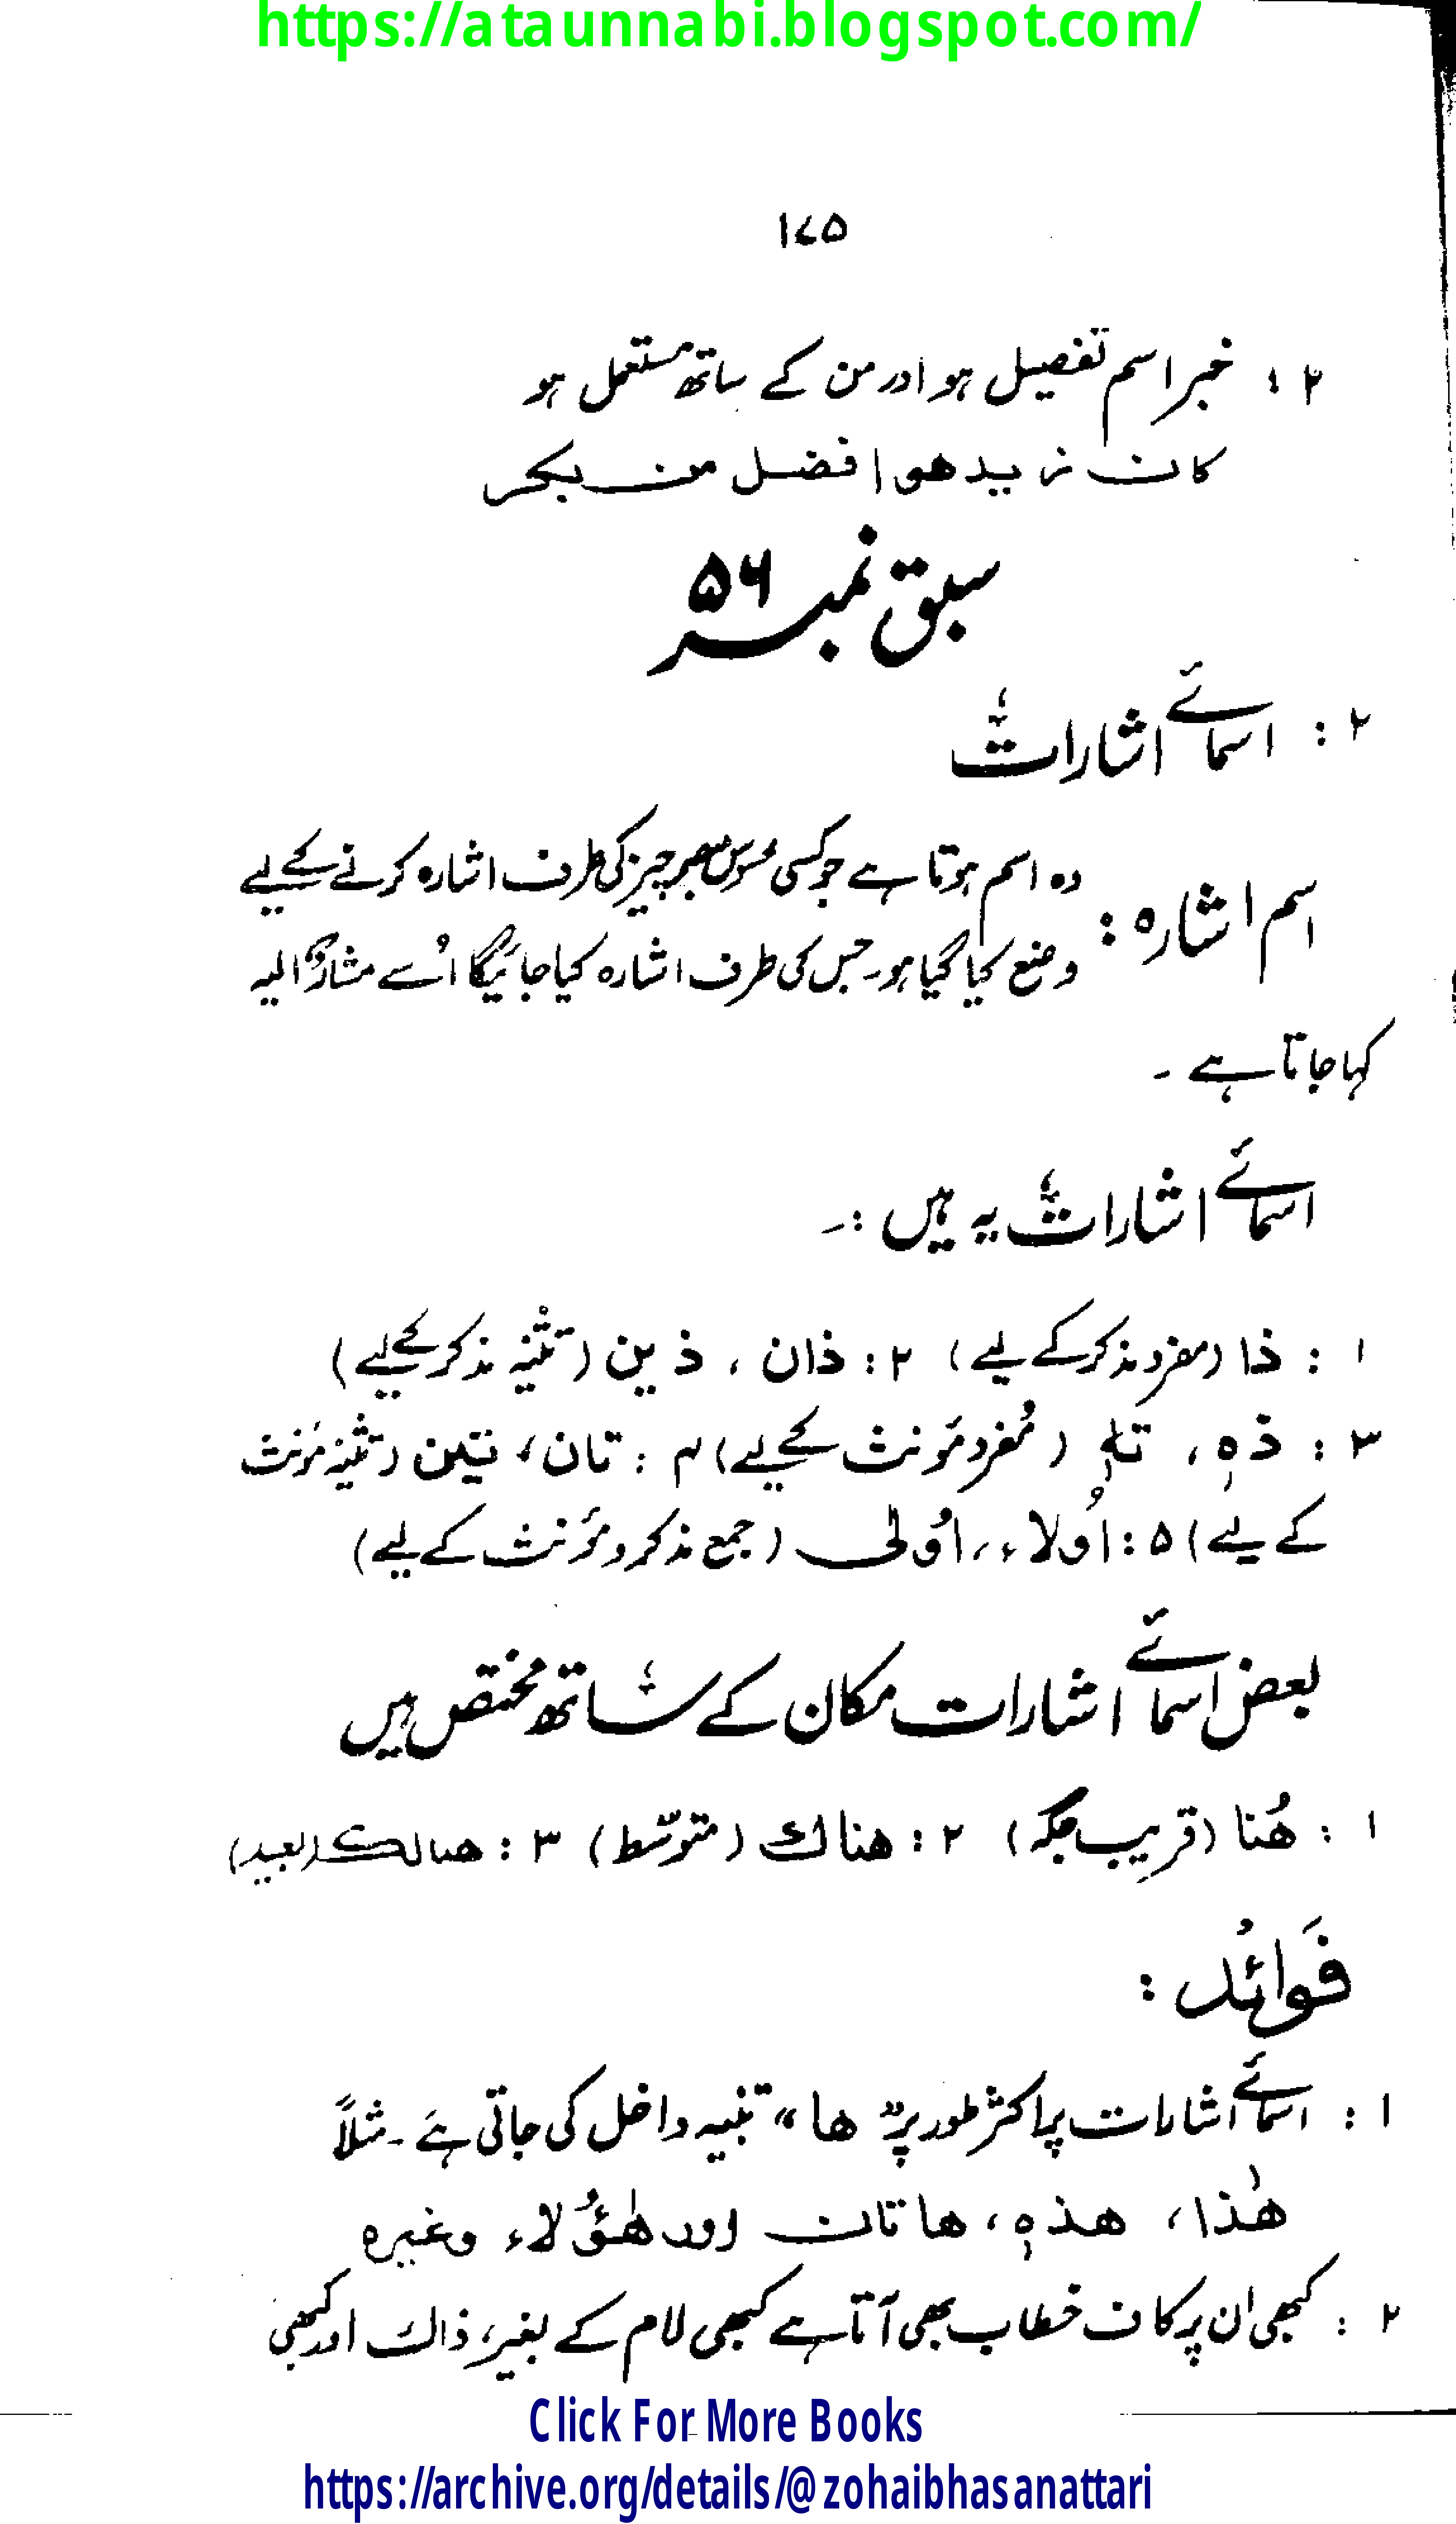 https://ataunnabi.blogspot.com/
۱۷۵
۲ : خبر اسم تفضیل ہو اور من کے ساتھ مستعمل ہو
کان زید ھو افضل من بکر
سبق نمبر ۵۶
۲ : اسمائے اشارات
اسم اشارہ : وہ اسم ہوتا ہے جو کسی محسوس مبصر چیز کی طرف اشارہ کرنے کے لیے
وضع کیا گیا ہو۔ جس کی طرف اشارہ کیا جائیگا اُسے مشارٌ الیہ
کہا جاتا ہے ۔
اسمائے اشارات یہ ہیں :۔
۱ : ذا (مفرد مذکر کے لیے) ۲ : ذان ، ذین (تثنیہ مذکر کے لیے)
۳ : ذہٖ ، تہٖ (مُفرد مؤنث کے لیے) ۴ : تان ، تین (تثنیہ مؤنث
کے لیے) ۵ : اُولاءِ ، اُولٰی (جمع مذکر و مؤنث کے لیے)
بعض اسمائے اشارات مکان کے ساتھ مختص ہیں
۱ : ھُنا (قریب جگہ) ۲ : ھناك (متوسّط) ۳ : ھنالك (بعید)
فَوائد :
۱ : اسمائے اشارات پر اکثر طور پر "ھا" تنبیہ داخل کی جاتی ہے ۔ مثلاً
ھٰذا ، ھذہٖ ، ھاتان اور ھٰؤُلاء وغیرہ
۲ : کبھی ان پر کاف خطاب بھی آتا ہے کبھی لام کے بغیر، ذاك اور کبھی
Click For More Books
https://archive.org/details/@zohaibhasanattari